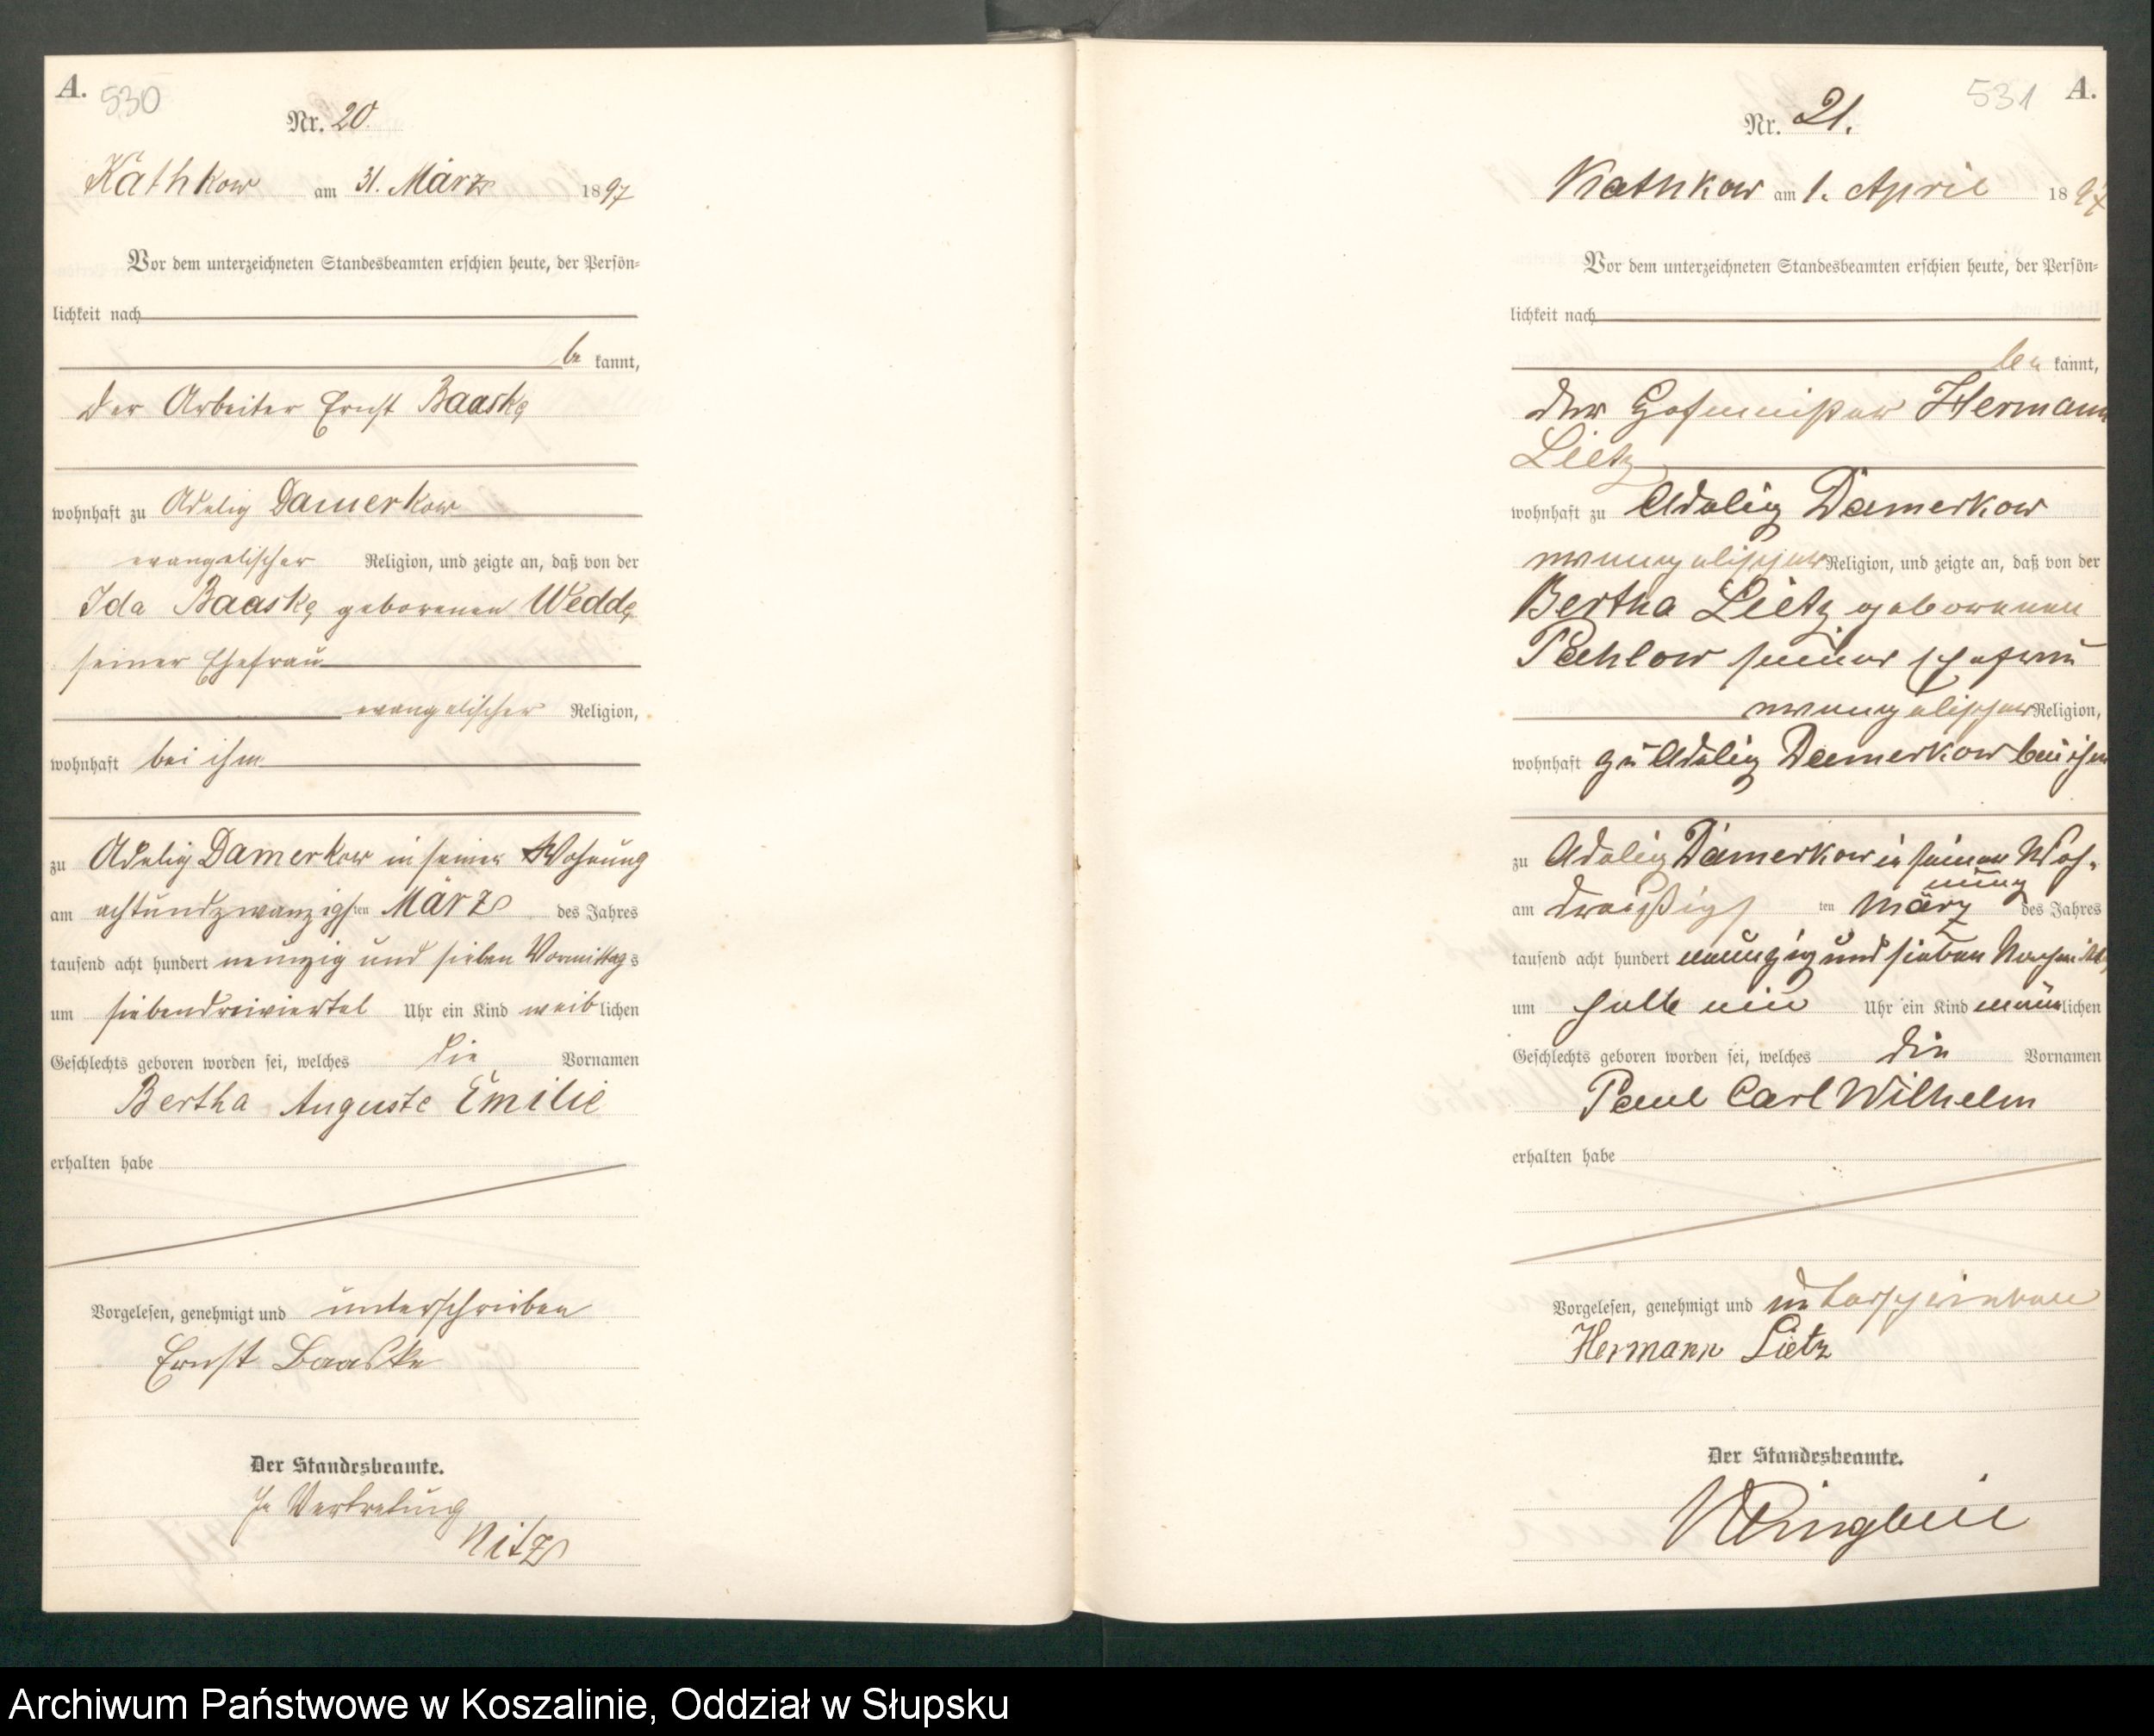 A.
530
Nr. 20.
Kathkow am 31. März 1897
Vor dem unterzeichneten Standesbeamten erschien heute, der Persön-
lichkeit nach
be kannt,
der Arbeiter Ernst Baaske
wohnhaft zu Adelig Damerkow
evangelischer Religion, und zeigte an, daß von der
Ida Baaske geborenen Wedde
seiner Ehefrau
evangelischer Religion,
wohnhaft bei ihm
zu Adelig Damerkow in seiner Wohnung
am achtundzwanzigsten März des Jahres
tausend acht hundert neunzig und sieben Vormittags
um siebendreiviertel Uhr ein Kind weiblichen
Geschlechts geboren worden sei, welches die Vornamen
Bertha Auguste Emilie
erhalten habe
Vorgelesen, genehmigt und unterschrieben
Ernst Baaske
Der Standesbeamte.
In Vertretung
Nitz
531
A.
Nr. 21.
Kathkow am 1. April 1897
Vor dem unterzeichneten Standesbeamten erschien heute, der Persön-
lichkeit nach
be kannt,
der Hofmeister Hermann
Lietz
wohnhaft zu Adelig Damerkow
evangelischer Religion, und zeigte an, daß von der
Bertha Lietz geborenen
Pahlow seiner Ehefrau
evangelischer Religion,
wohnhaft zu Adelig Damerkow bei ihm
zu Adelig Damerkow in seiner Woh-
nung
am dreißigsten März des Jahres
tausend acht hundert neunzig und sieben Nachmittags
um halb ein Uhr ein Kind männlichen
Geschlechts geboren worden sei, welches die Vornamen
Paul Carl Wilhelm
erhalten habe
Vorgelesen, genehmigt und unterschrieben
Hermann Lietz
Der Standesbeamte.
Archiwum Państwowe w Koszalinie, Oddział w Słupsku